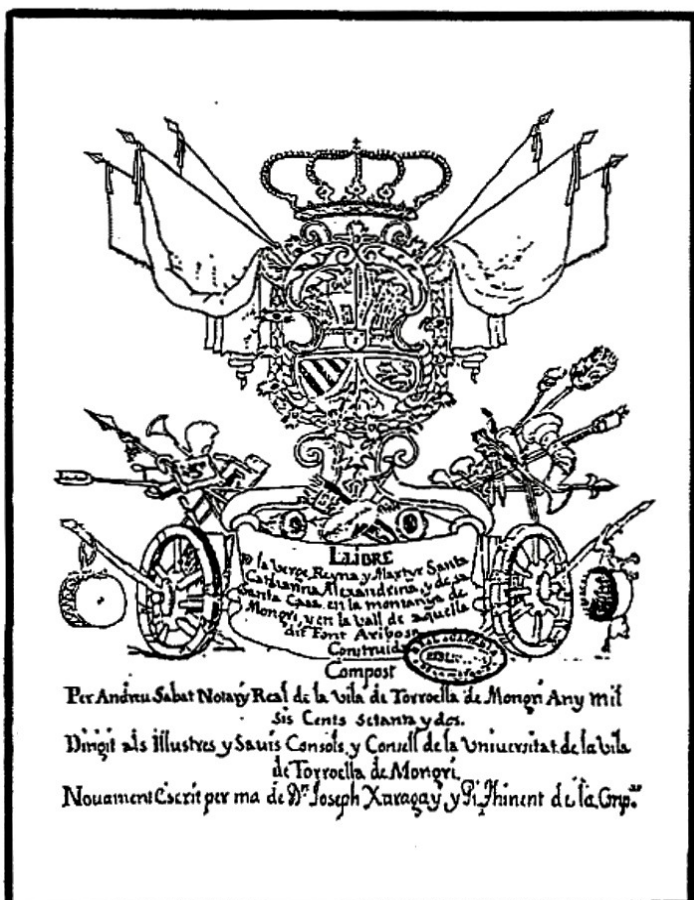 LLIBRE
De la Verge Reyna y Martyr Santa
Catharina Alexandrina, y de sa
Santa Casa en la montanya de
Mongri, y en la Vall de aquella
dit Font Aribosa
Construida
Compost
Per Andreu Sabat Notary Real de la Vila de Torroella de Mongri Any mil
Sis Cents Setanta y dos.
Dirigit als Illustres y Savis Consols, y Consell de la Universitat de la Vila
de Torroella de Mongri.
Novament Escrit per ma de Dn. Joseph Xaragay, y Pi, Thinent de la